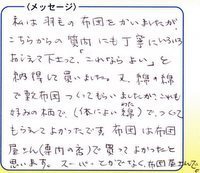 (メッセージ)
私は羽毛の布団をかいましたが
こちらからの質問にも丁寧にいろいろ
おしえて下さって、これならよい、と
納得して買いました。又、綿の綿
で敷布団つくってもらいましたが、これも
好みの柄で、(体によい綿わた)で、つくって
もらえてよかったです。布団は布団
屋さん(専門の店)で買ってよかったと
思います。スーパーとかでなく、布団屋さんで。